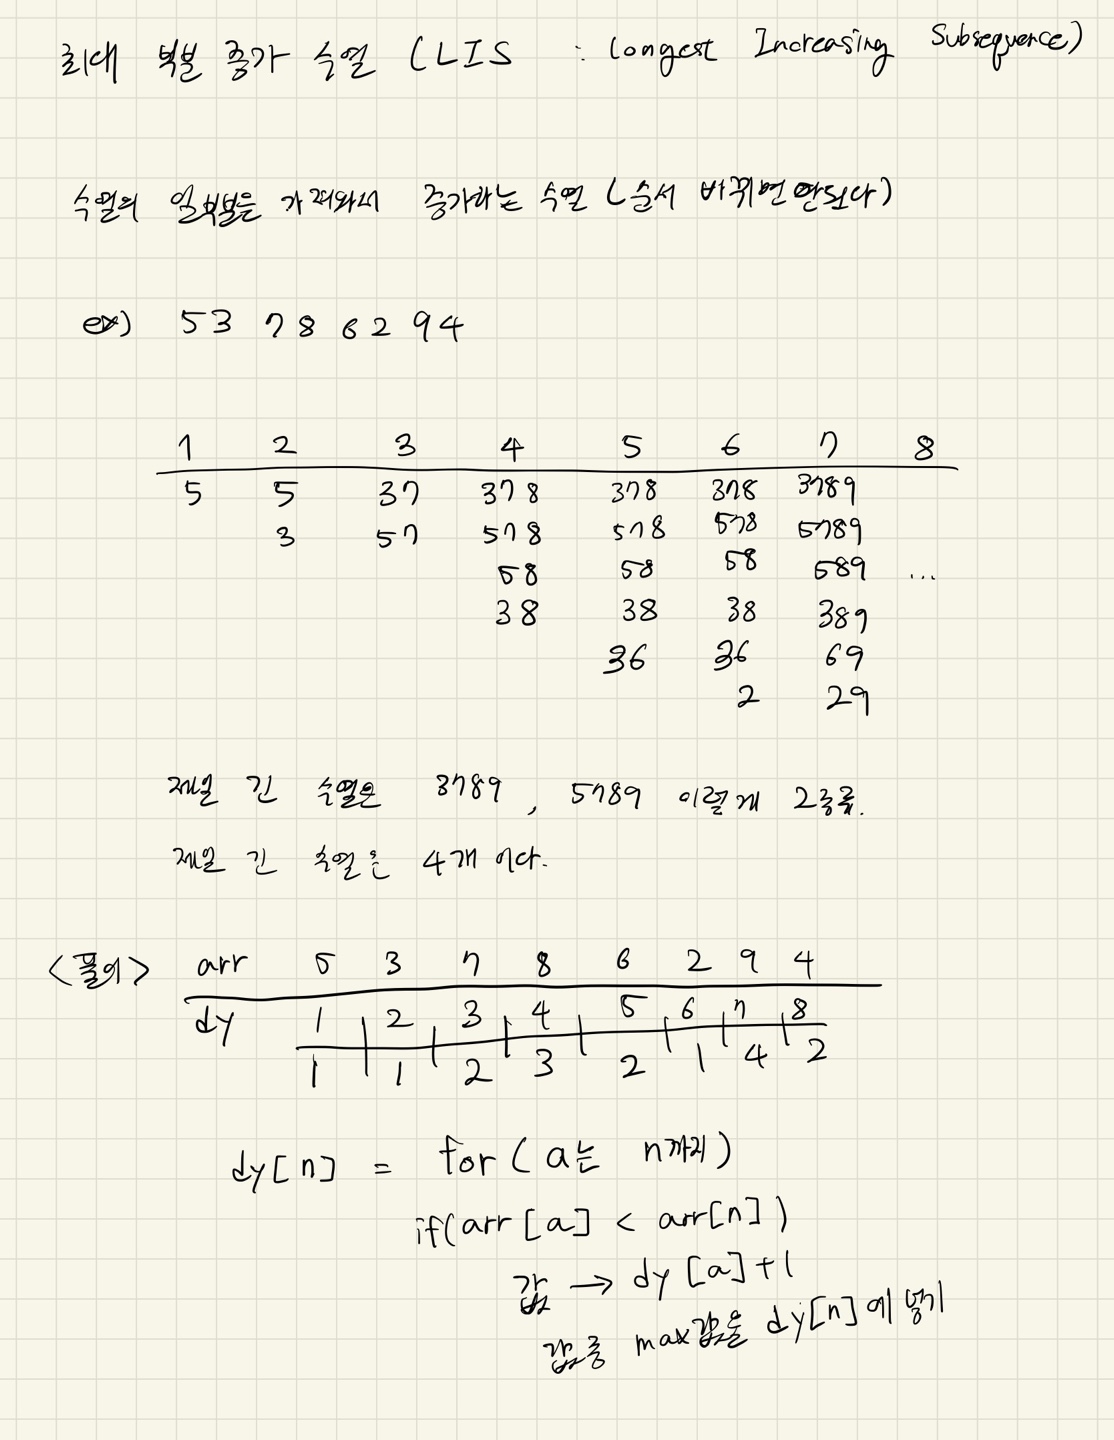 최대 부분 증가 수열 (LIS : Longest Increasing Subsequence)
수열의 일부분을 가져와서 증가하는 수열 (순서 바뀌면 안된다)
ex) 5 3 7 8 6 2 9 4
1 2 3 4 5 6 7 8
5 5 37 378 378 378 3789
3 57 578 578 578 5789
58 58 58 589 ...
38 38 38 389
36 36 69
2 29
제일 긴 수열은 3789, 5789 이렇게 2종류.
제일 긴 수열은 4개 이다.
<풀이> arr 5 3 7 8 6 2 9 4
dy 1 2 3 4 5 6 7 8
1 1 2 3 2 1 4 2
dy[n] = for(a는 n까지)
if(arr[a] < arr[n])
값 → dy[a]+1
값중 max값을 dy[n]에 넣기